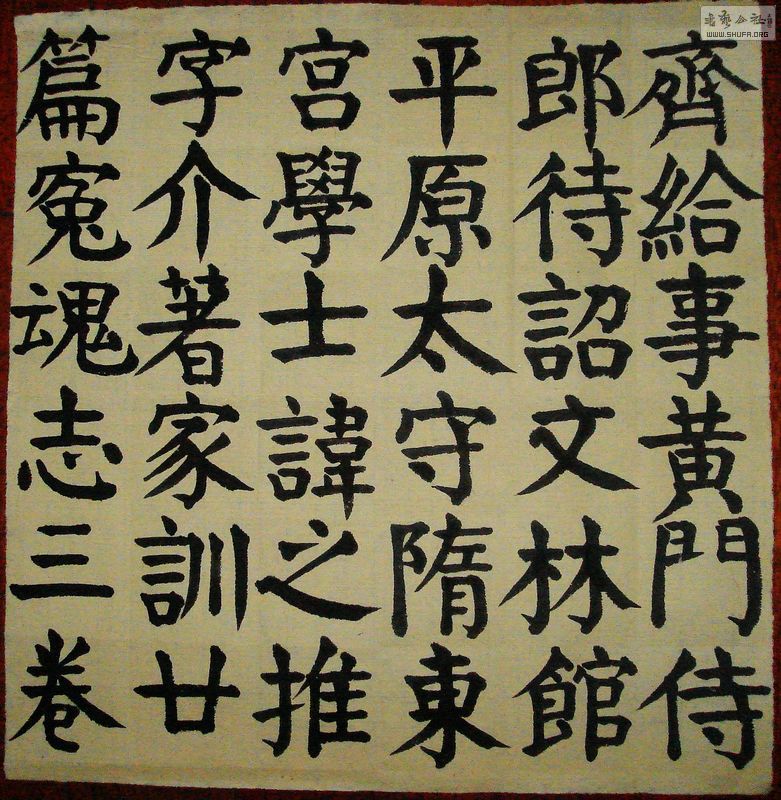 齊給事黃門侍
郎待詔文林館
平原太守隋東
宮學士諱之推
字介著家訓廿
篇冤魂志三卷
WWW.SHUFA.ORG